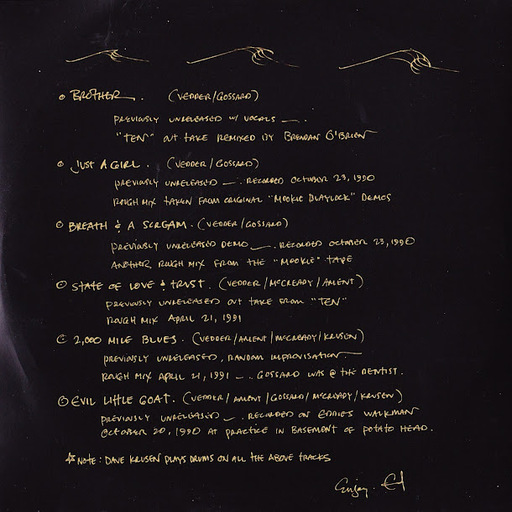 o BROTHER. (VEDDER/GOSSARD)
PREVIOUSLY UNRELEASED W/ VOCALS —.
"TEN" OUT TAKE REMIXED BY BRENDAN O'BRIEN
o JUST A GIRL. (VEDDER/GOSSARD)
PREVIOUSLY UNRELEASED —. RECORDED OCTOBER 23, 1990
ROUGH MIX TAKEN FROM ORIGINAL "MOOKIE BLAYLOCK" DEMOS
o BREATH & A SCREAM. (VEDDER/GOSSARD)
PREVIOUSLY UNRELEASED DEMO —. RECORDED OCTOBER 23, 1990
ANOTHER ROUGH MIX FROM THE "MOOKIE" TAPE
o STATE OF LOVE & TRUST. (VEDDER/MCCREADY/AMENT)
PREVIOUSLY UNRELEASED OUT TAKE FROM "TEN"
ROUGH MIX APRIL 21, 1991
o 2,000 MILE BLUES. (VEDDER/AMENT/MCCREADY/KRUSEN)
PREVIOUSLY UNRELEASED, RANDOM IMPROVISATION—
ROUGH MIX APRIL 21, 1991 —. GOSSARD WAS @ THE DENTIST.
o EVIL LITTLE GOAT. (VEDDER/AMENT/GOSSARD/MCCREADY/KRUSEN)
PREVIOUSLY UNRELEASED —. RECORDED ON EDDIES WALKMAN
OCTOBER 20, 1990 AT PRACTICE IN BASEMENT OF POTATO HEAD.
☆NOTE: DAVE KRUSEN PLAYS DRUMS ON ALL THE ABOVE TRACKS
Enjoy. Ed